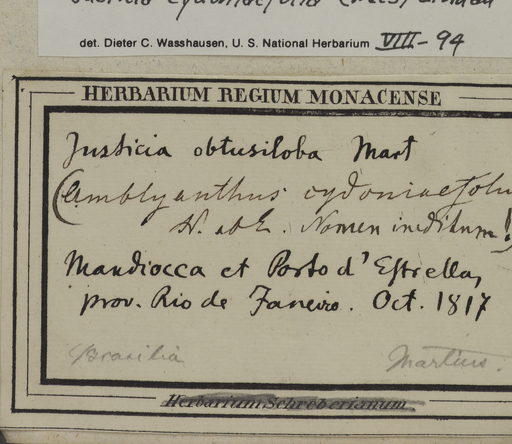 Justicia cydoniaefolia (Nees) Lindau
det. Dieter C. Wasshausen, U. S. National Herbarium VIII-94
HERBARIUM REGIUM MONACENSE
Justicia obtusiloba Mart
(Amblyanthus cydoniaefoliu
N. ab E. Nomen ineditum!)
Mandiocca et Porto d'Estrella,
prov. Rio de Janeiro. Oct. 1817
Brasilia Martius.
Herbarium Schreberianum